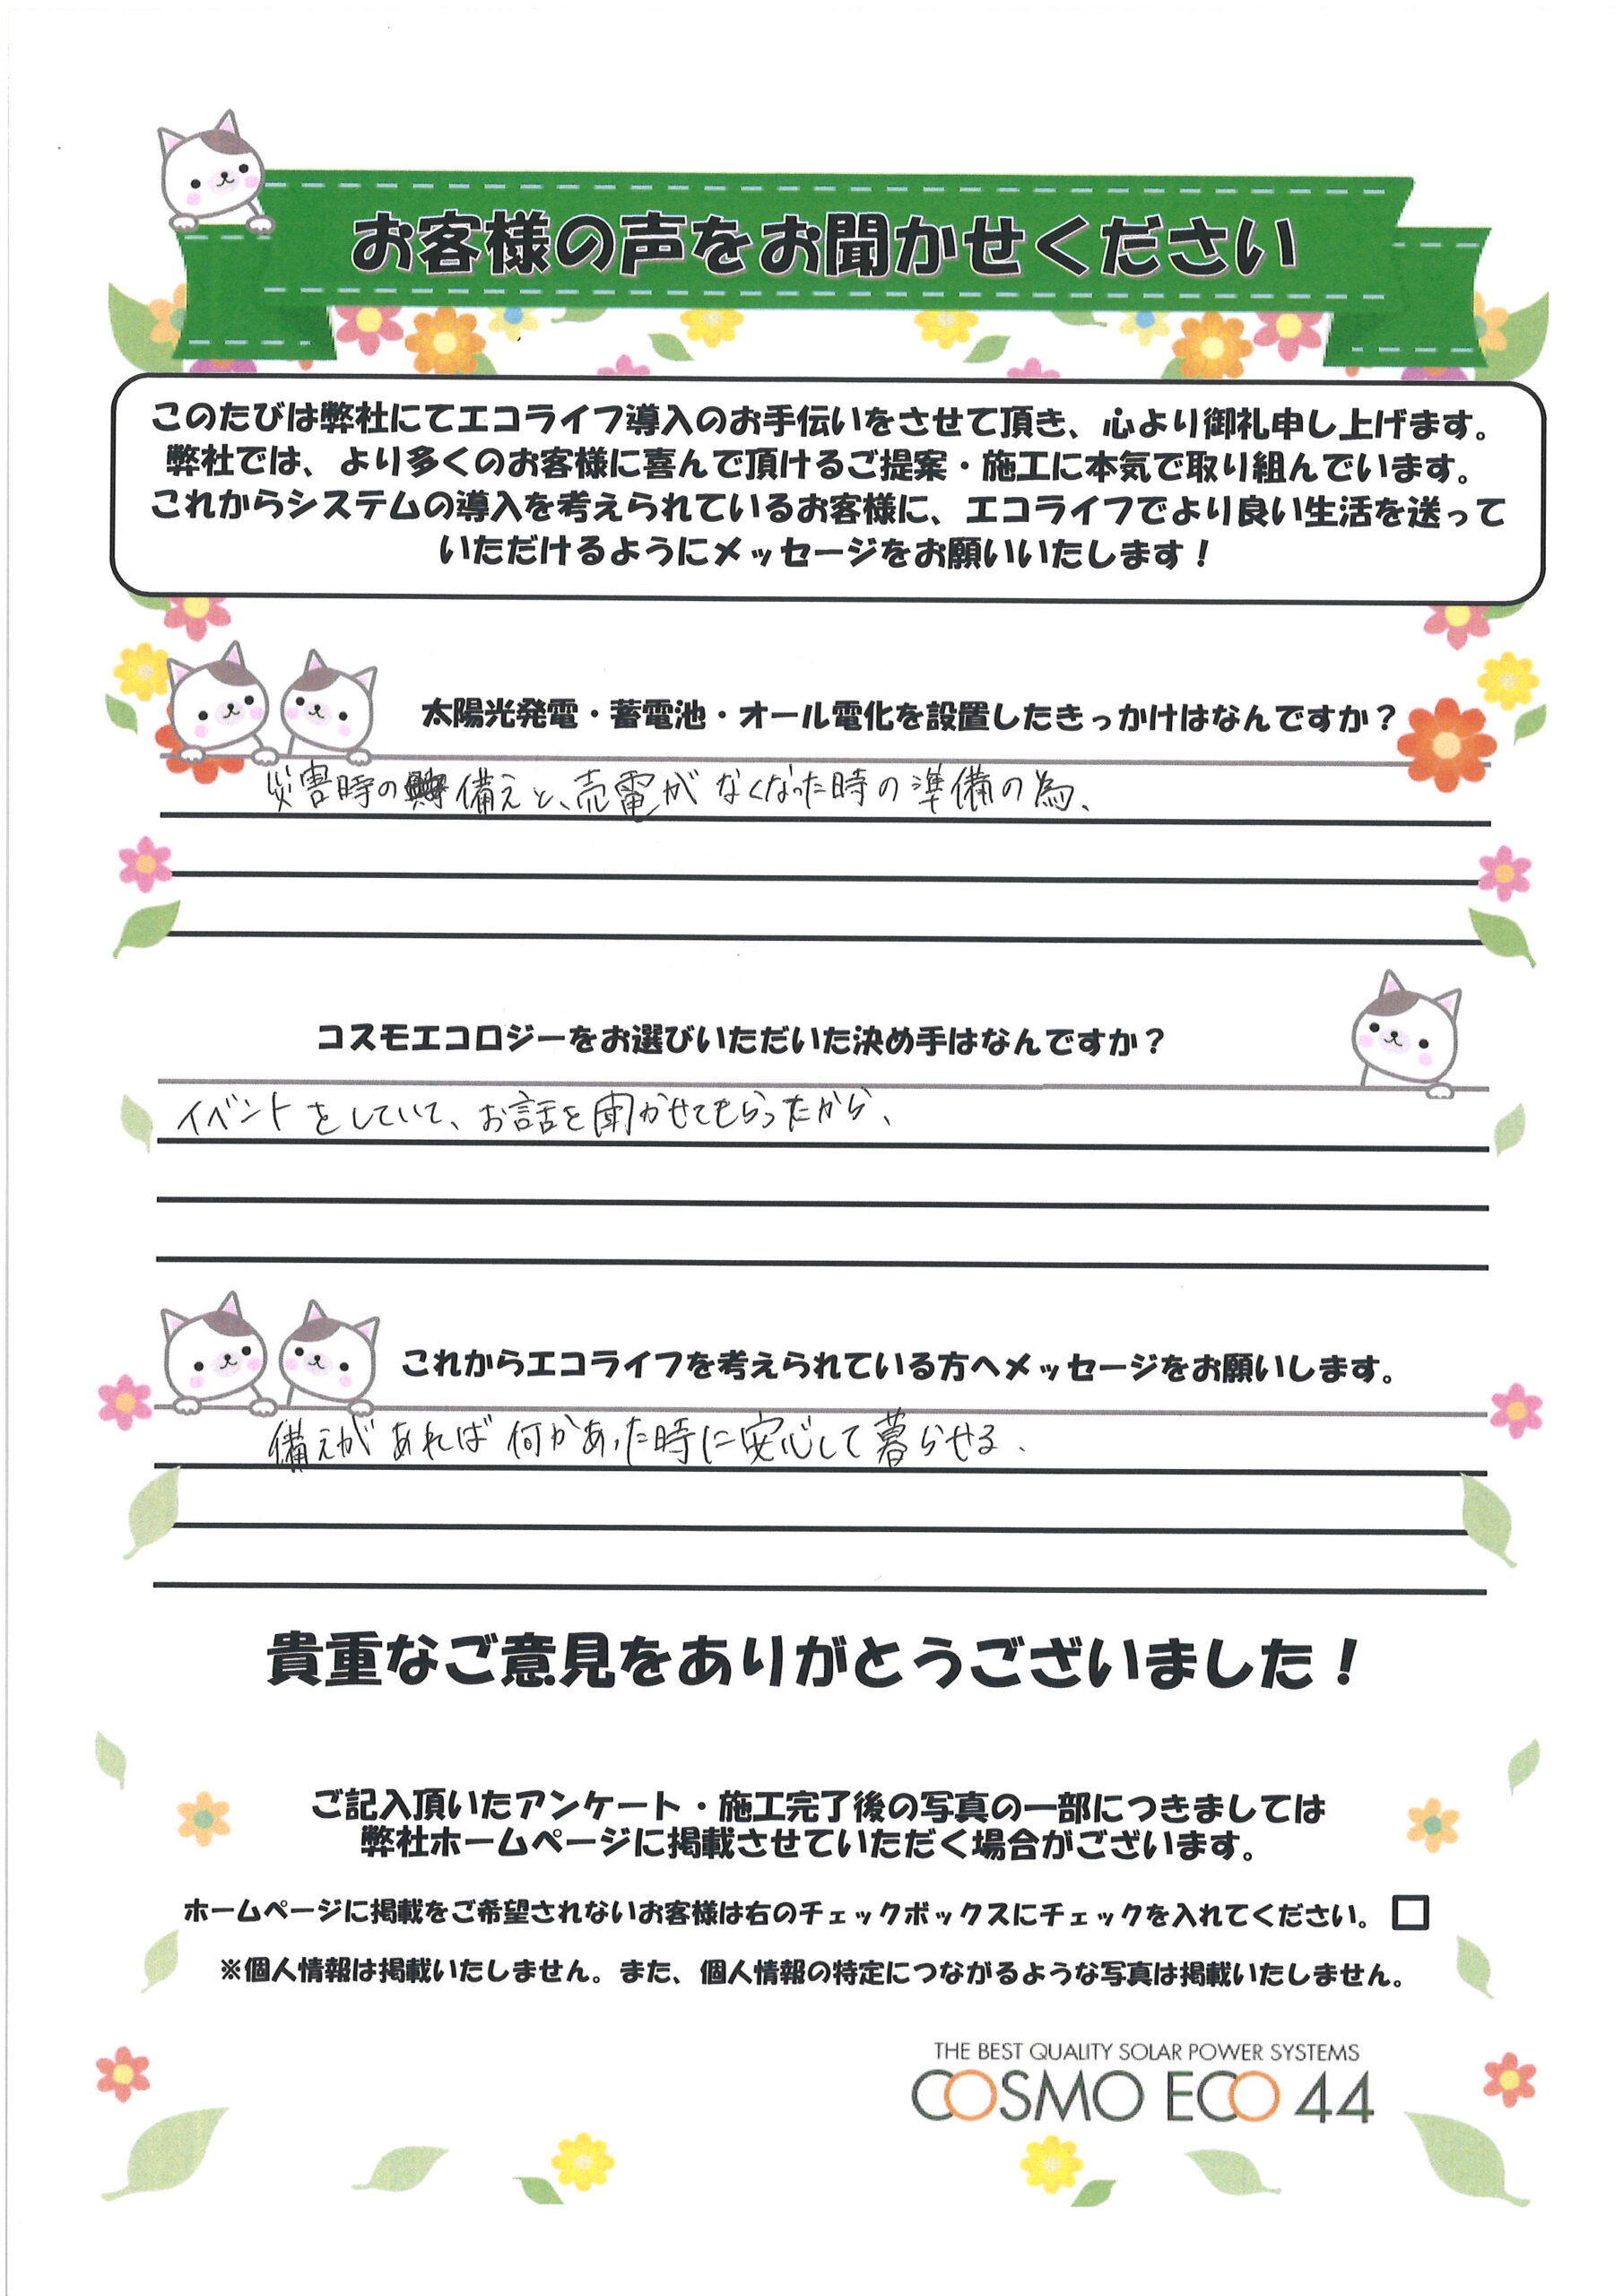 お客様の声をお聞かせください
このたびは弊社にてエコライフ導入のお手伝いをさせて頂き、心より御礼申し上げます。
弊社では、より多くのお客様に喜んで頂けるご提案・施工に本気で取り組んでいます。
これからシステムの導入を考えられているお客様に、エコライフでより良い生活を送って
いただけるようにメッセージをお願いいたします！
太陽光発電・蓄電池・オール電化を設置したきっかけはなんですか？
災害時の備えと、売電がなくなった時の準備の為、
コスモエコロジーをお選びいただいた決め手はなんですか？
イベントをしていて、お話を聞かせてもらったから、
これからエコライフを考えられている方へメッセージをお願いします。
備えがあれば何かあった時に安心して暮らせる、
貴重なご意見をありがとうございました！
ご記入頂いたアンケート・施工完了後の写真の一部につきましては
弊社ホームページに掲載させていただく場合がございます。
ホームページに掲載をご希望されないお客様は右のチェックボックスにチェックを入れてください。
※個人情報は掲載いたしません。また、個人情報の特定につながるような写真は掲載いたしません。
THE BEST QUALITY SOLAR POWER SYSTEMS
COSMO ECO 44